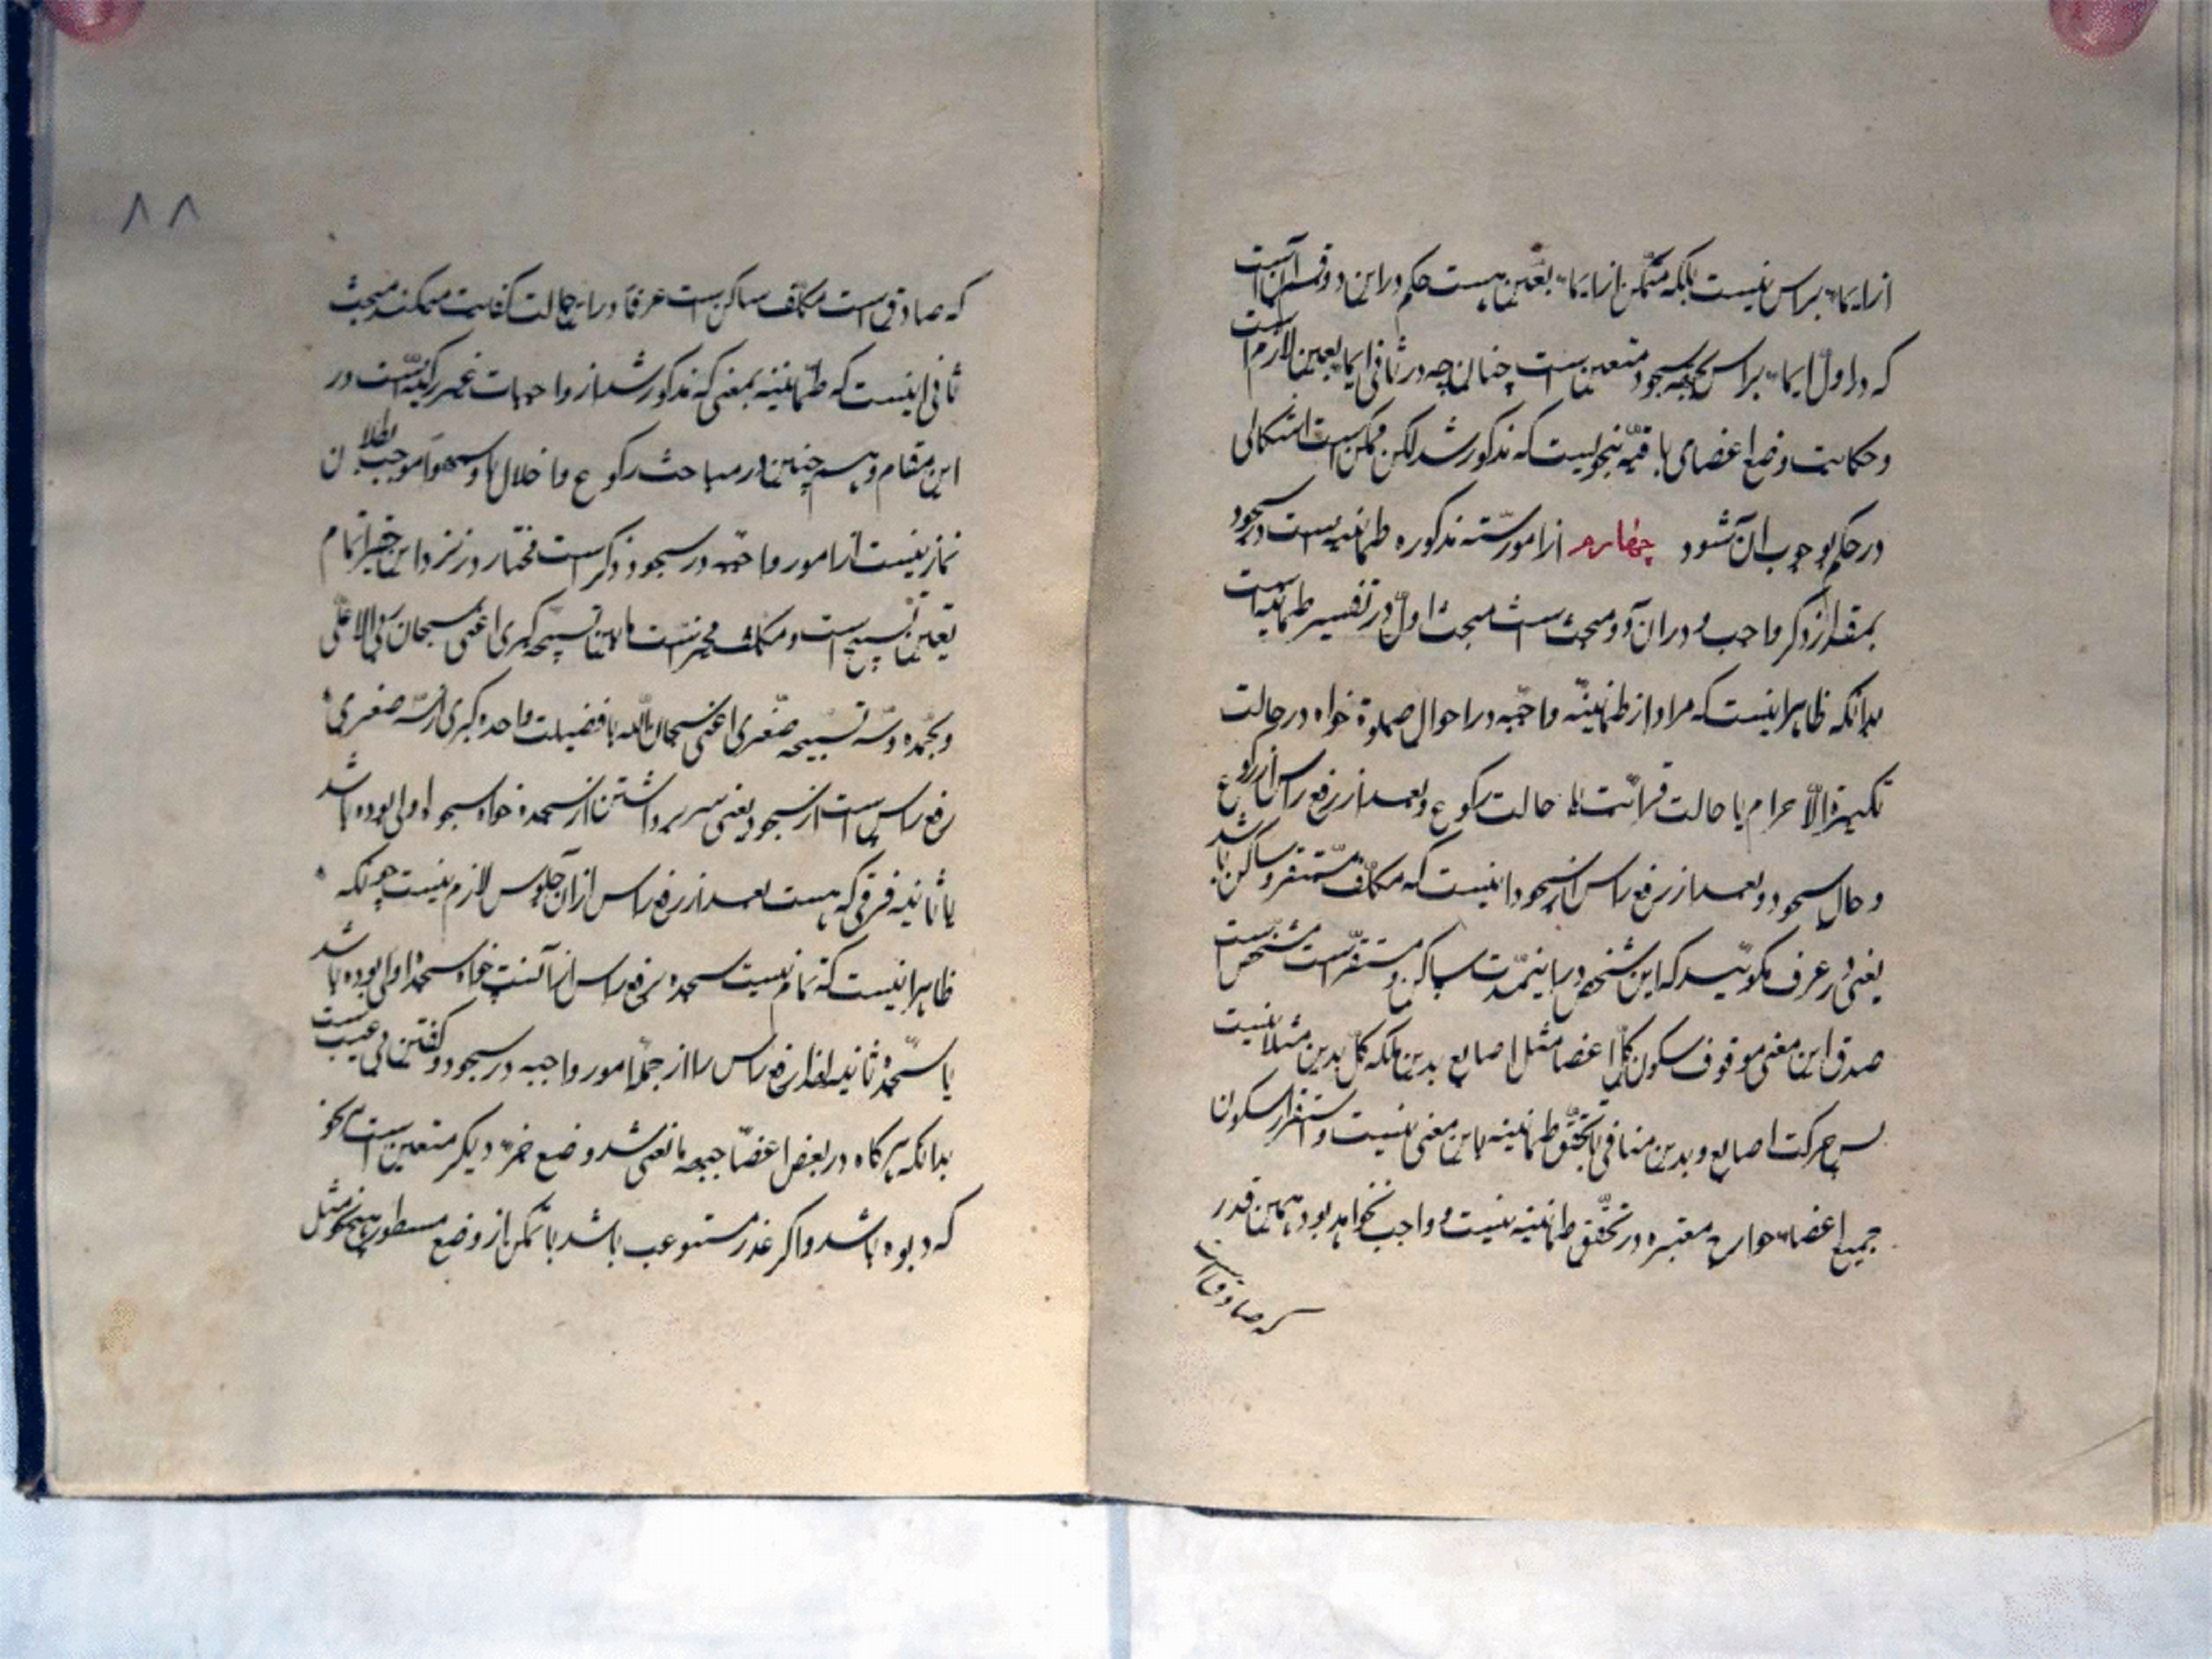 از ایماء براس نیست بلکه متمکن از ایماء بعین هست حکم در این دو قسم آنست
که در اول ایماء براس بجهه سجود متعین است چنانچه در ثانی ایما بعین لازم است
و حکایت وضع اعضای باقیه بنحویست که مذکور شد لکن ممکن است اشکالی
در حکم بوجوب ان شود چهارم از امور سته مذکوره طمانینه است در سجود
بمقدار ذکر واجب و در ان دو مبحث است مبحث اول در تفسیر طمانینه است
بدانکه ظاهر اینست که مراد از طمانینه واجبه در احوال صلوة خواه در حالت
تکبیرة الاحرام یا حالت قرائت یا حالت رکوع و بعد از رفع راس از رکوع
و حال سجود و بعد از رفع راس از سجود اینست که مکلف مستقر و ساکن باشد
یعنی در عرف بگویند که این شخص در اینمدت ساکن و مستقر است مشخص است
صدق این معنی موقوف بسکون کل اعضا مثل اصابع یدین بلکه کل یدین مثلا نیست
پس حرکت اصابع و یدین منافی با تحقق طمانینه باین معنی نیست و استقرار و سکون
جمیع اعضاء و جوارح معتبره در تحقق طمانینه نیست و واجب نخواهد بود همین قدر
که صادق است
۸۸
که صادق است مکلف ساکن است عرفا در این حالت کفایت میکند مبحث
ثانی اینست که طمانینه بمعنی که مذکور شد از واجبات غیر رکنیه است در
این مقام و هم چنین در مباحث رکوع و اخلال باو سهوا موجب بطلان
نماز نیست از امور واجبه در سجود ذکر است مختار در نزد این حقیر تمام
تعین تسبیح است و مکلف مخیر است ما بین تسبیحه کبری اعنی سبحان ربی الاعلی
و بحمده و سه تسبیحه صغری اعنی سبحان الله با فضیلت واحده کبری از سه صغری
رفع راس است از سجود یعنی سر برداشتن از سجده خواه سجده اولی بوده باشد
یا ثانیه فرقی که هست بعد از رفع راس از ان جلوس لازم نیست چونکه
ظاهر اینست که تمامیت سجده برفع راس از آنست خواه سجده اولی بوده باشد
یا سجده ثانیه لهذا رفع راس را از جمله امور واجبه در سجود گفتن بی عیب است
بدانکه هر گاه در بعض اعضا جبهه مانعی شد وضع جزء دیگر متعین است بهر نحو
که بوده باشد و اگر عذر مستوعب باشد با تمکن از وضع مسطور بهیچ نحو مثل